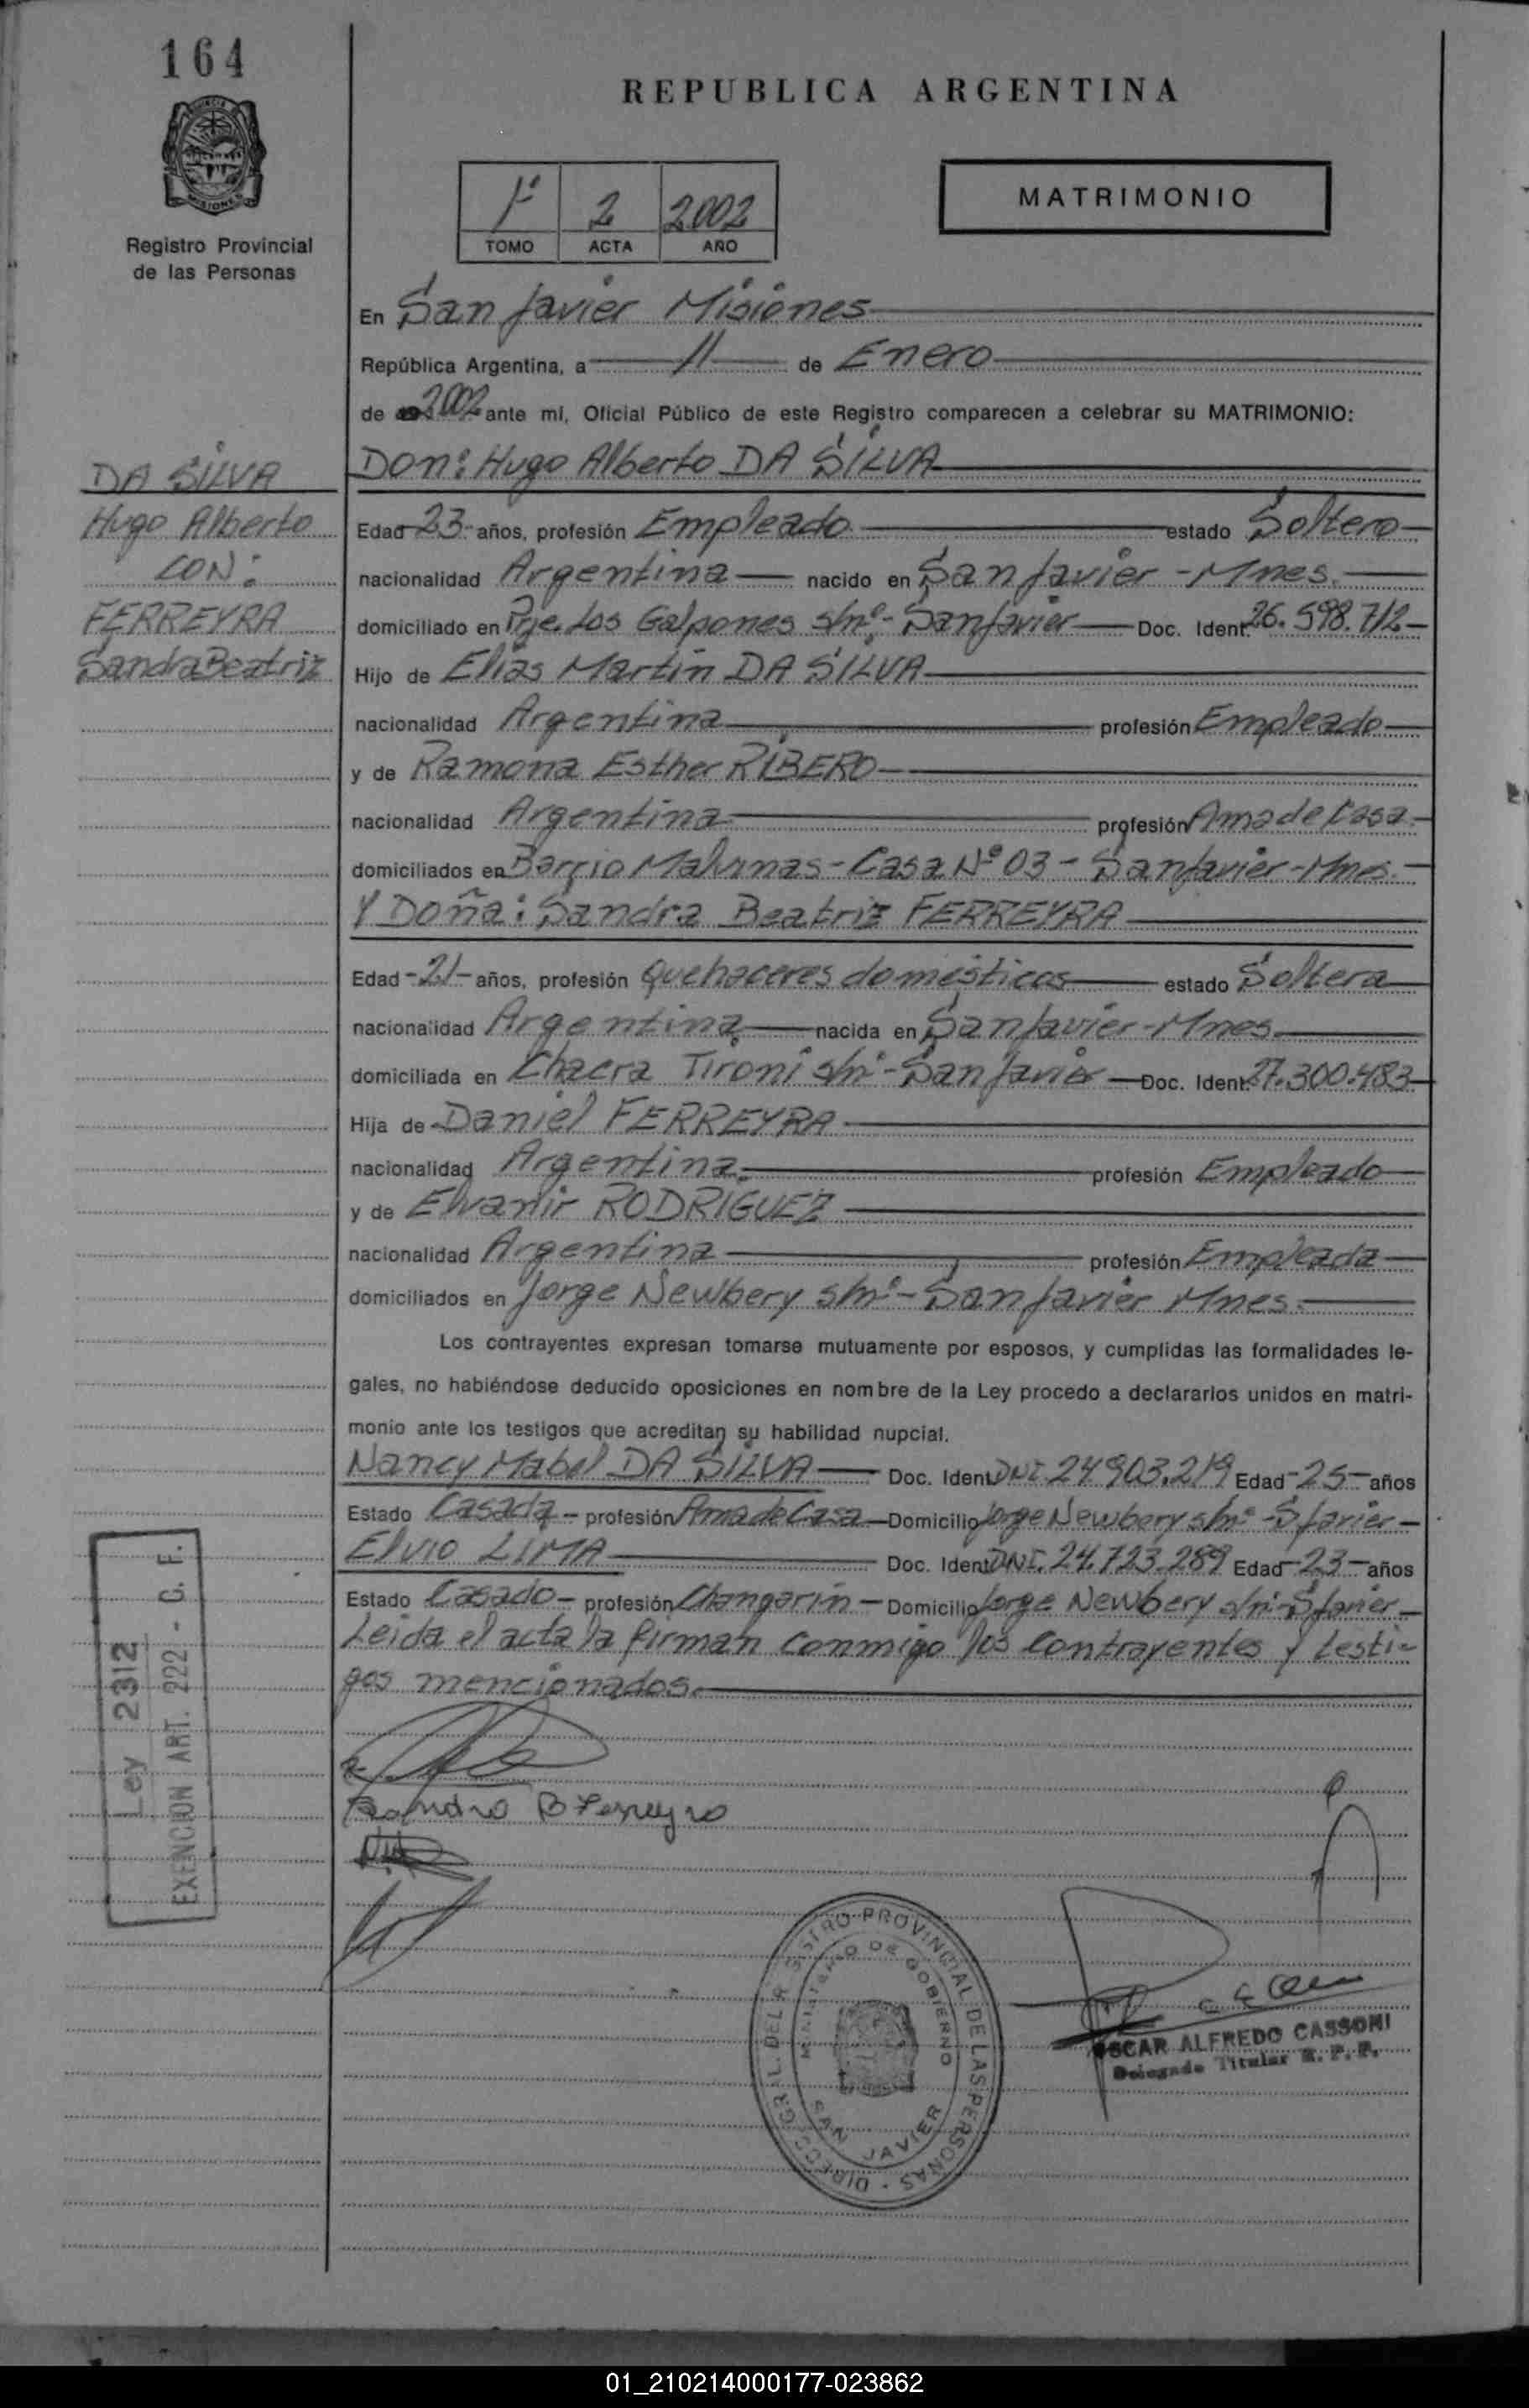 164
REPUBLICA ARGENTINA
MATRIMONIO
1º 2 2002
TOMO ACTA AÑO
Registro Provincial
de las Personas
En San Javier Misiones
República Argentina, a 11 de Enero
de 2002 ante mí, Oficial Público de este Registro comparecen a celebrar su MATRIMONIO:
DA SILVA
Hugo Alberto
CON:
FERREYRA
Sandra Beatriz
Don: Hugo Alberto DA SILVA
Edad 23 años, profesión Empleado estado Soltero
nacionalidad Argentina nacido en San Javier - Mnes.
domiciliado en Pje. Los Galpones s/nº - San Javier Doc. Ident. 26.598.712
Hijo de Elias Martin DA SILVA
nacionalidad Argentina profesión Empleado
y de Ramona Esther RIBERO
nacionalidad Argentina profesión Ama de Casa
domiciliados en Barrio Malvinas - Casa Nº 03 - San Javier - Mnes.
Y Doña: Sandra Beatriz FERREYRA
Edad - 21 - años, profesión Quehaceres domésticos estado Soltera
nacionalidad Argentina nacida en San Javier - Mnes
domiciliada en Chacra Tironi s/nº - San Javier Doc. Ident. 27.300.483
Hija de Daniel FERREYRA
nacionalidad Argentina profesión Empleado
y de Elvanir RODRIGUEZ
nacionalidad Argentina profesión Empleada
domiciliados en Jorge Newbery s/nº - San Javier Mnes.
Los contrayentes expresan tomarse mutuamente por esposos, y cumplidas las formalidades le-
gales, no habiéndose deducido oposiciones en nombre de la Ley procedo a declararlos unidos en matri-
monio ante los testigos que acreditan su habilidad nupcial.
Nancy Mabel DA SILVA Doc. Ident. DNI. 24.903.219 Edad - 25 - años
Estado Casada - profesión Ama de Casa Domicilio Jorge Newbery s/nº - S. Javier -
Elvio LIMA Doc. Ident. DNI. 24.723.289 Edad - 23 - años
Estado Casado - profesión Changarín - Domicilio Jorge Newbery s/nº - S. Javier -
Leida el acta la firman conmigo los contrayentes y testi-
gos mencionados.
Ley 2312
EXENCION ART. 222 - C. F.
Sandra B Ferreyra
DIRECC. GRAL. DEL REGISTRO PROVINCIAL DE LAS PERSONAS
MINISTERIO DE GOBIERNO
SAN JAVIER
OSCAR ALFREDO CASSONI
Delegado Titular R. P. P.
01_210214000177-023862